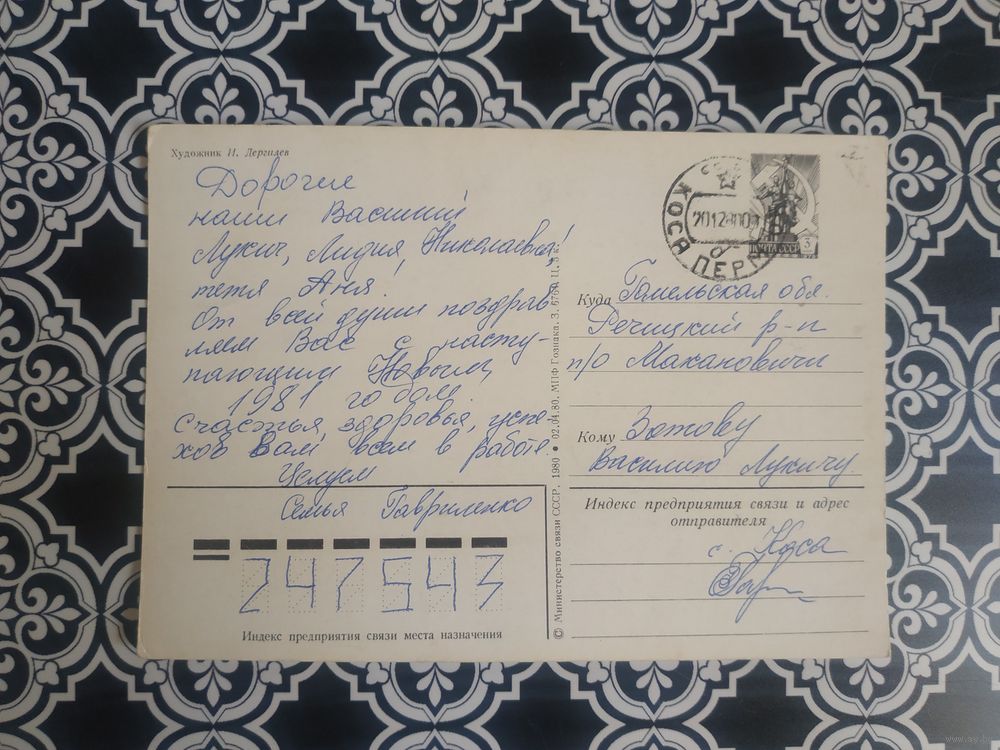 Художник И. Дергилев
Дорогие
наши Василий
Лукич, Лидия Николаевна,
тетя Аня!
От всей души поздрав
ляем Вас с насту-
пающим Новым
1981 годом.
Счастья, здоровья, успе-
хов Вам всем в работе.
Целуем
Семья Гавриленко
247543
Индекс предприятия связи места назначения
© Министерство связи СССР, 1980 ● 02.04.80. МПФ Гознака. З. Ц. 5 к.
КОСА ПЕРМ
ПОЧТА СССР 3
Куда Гомельская обл.
Речицкий р-н
п/о Макановичи
Кому Зотову
Василию Лукичу
Индекс предприятия связи и адрес
отправителя
с. Коса
www.ay.by